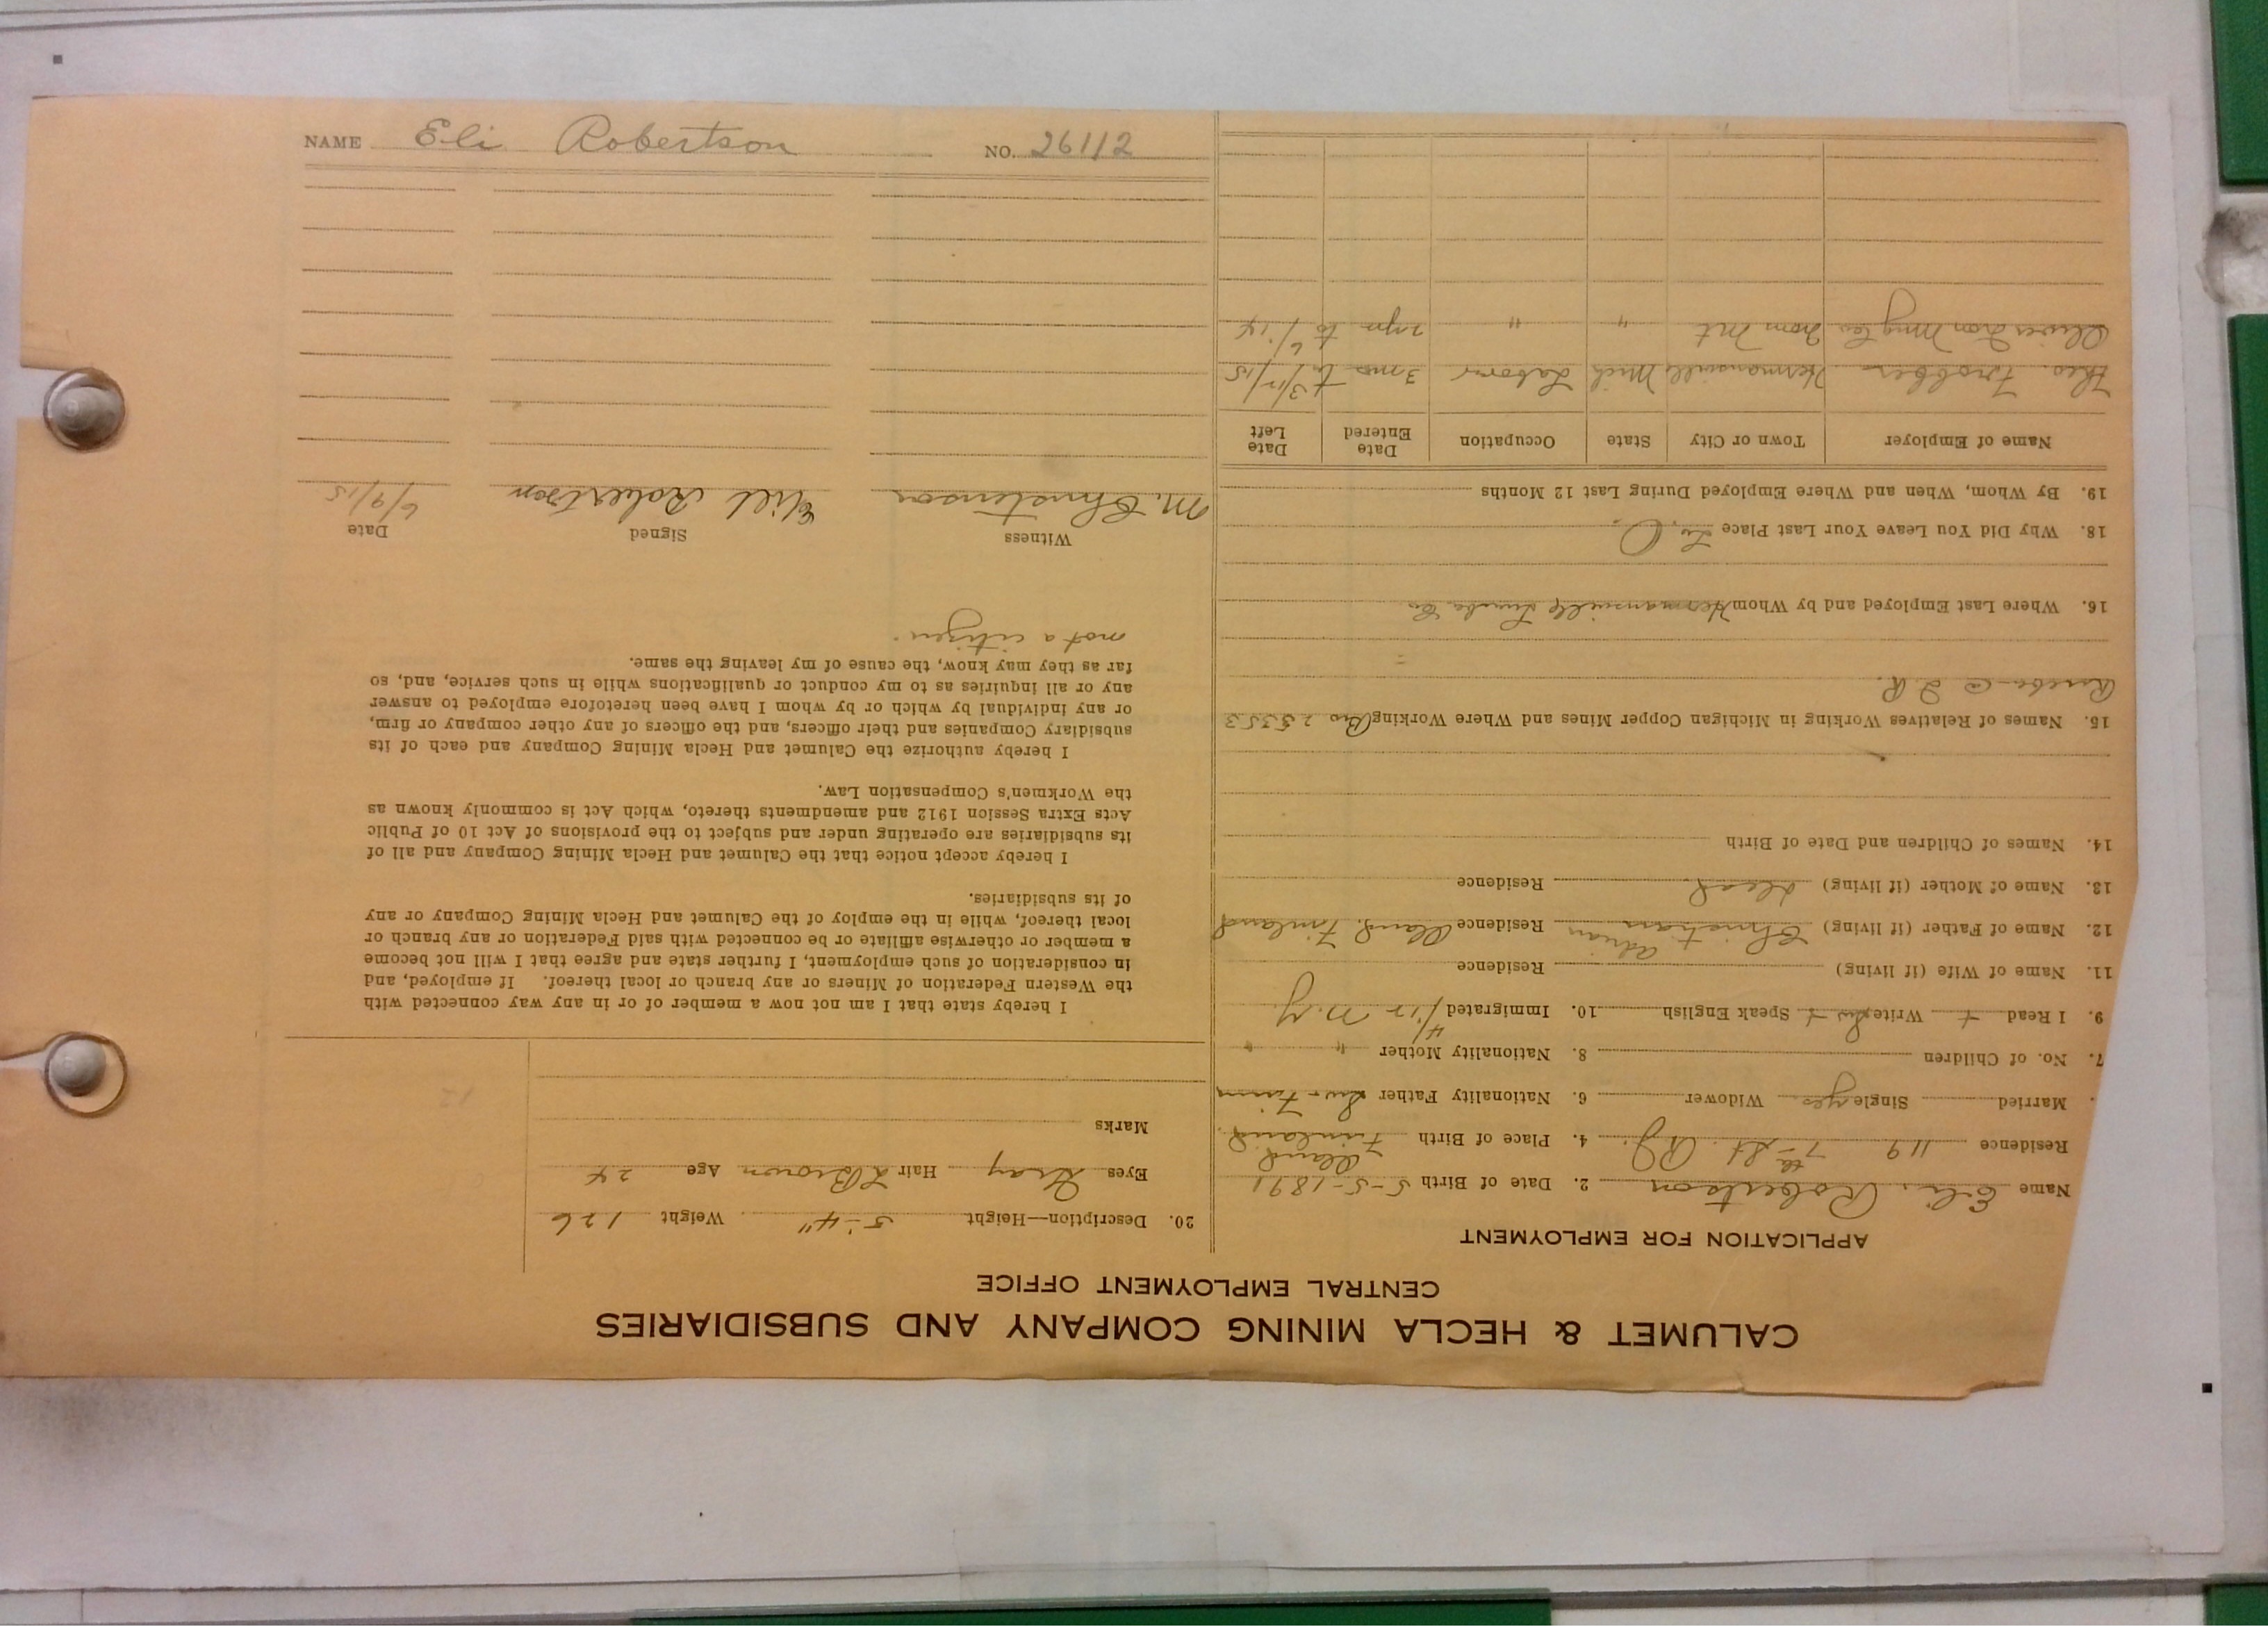 CALUMET & HECLA MINING COMPANY AND SUBSIDIARIES
CENTRAL EMPLOYMENT OFFICE
APPLICATION FOR EMPLOYMENT
Name Eli Robertson 2. Date of Birth 5-5-1891
Residence 119 7th St. RJ 4. Place of Birth Aland Finland
Married Single yes Widower 6. Nationality Father Sw-Finn
7. No. of Children 8. Nationality Mother " "
9. I Read + Write Sw + Speak English 10. Immigrated 4/12 N.Y
11. Name of Wife (if living) Residence
12. Name of Father (if living) Christian Adrian Residence Aland, Finland
13. Name of Mother (if living) dead Residence
14. Names of Children and Date of Birth
15. Names of Relatives Working in Michigan Copper Mines and Where Working Bro 25353
16. Where Last Employed and by Whom Hermansville Lumber Co
18. Why Did You Leave Your Last Place
19. By Whom, When and Where Employed During Last 12 Months
Name of Employer Town or City State Occupation Date Entered Date Left
Theo. Hermansville Mich Laborer 3 mos to 3/12/15
Oliver Iron Mng Co Iron Mt " " 2 yrs to 6/14
20. Description—Height 5-4" Weight 126
Eyes Gray Hair L Brown Age 24
Marks
I hereby state that I am not now a member of or in any way connected with
the Western Federation of Miners or any branch or local thereof. If employed, and
in consideration of such employment, I further state and agree that I will not become
a member or otherwise affiliate or be connected with said Federation or any branch or
local thereof, while in the employ of the Calumet and Hecla Mining Company or any
of its subsidiaries.
I hereby accept notice that the Calumet and Hecla Mining Company and all of
its subsidiaries are operating under and subject to the provisions of Act 10 of Public
Acts Extra Session 1912 and amendments thereto, which Act is commonly known as
the Workmen's Compensation Law.
I hereby authorize the Calumet and Hecla Mining Company and each of its
subsidiary Companies and their officers, and the officers of any other company or firm,
or any individual by which or by whom I have been heretofore employed to answer
any or all inquiries as to my conduct or qualifications while in such service, and, so
far as they may know, the cause of my leaving the same.
not a citizen.
Witness Signed Date
M. Christenson Eliel Robertson 6/9/15
NAME Eli Robertson NO. 26112